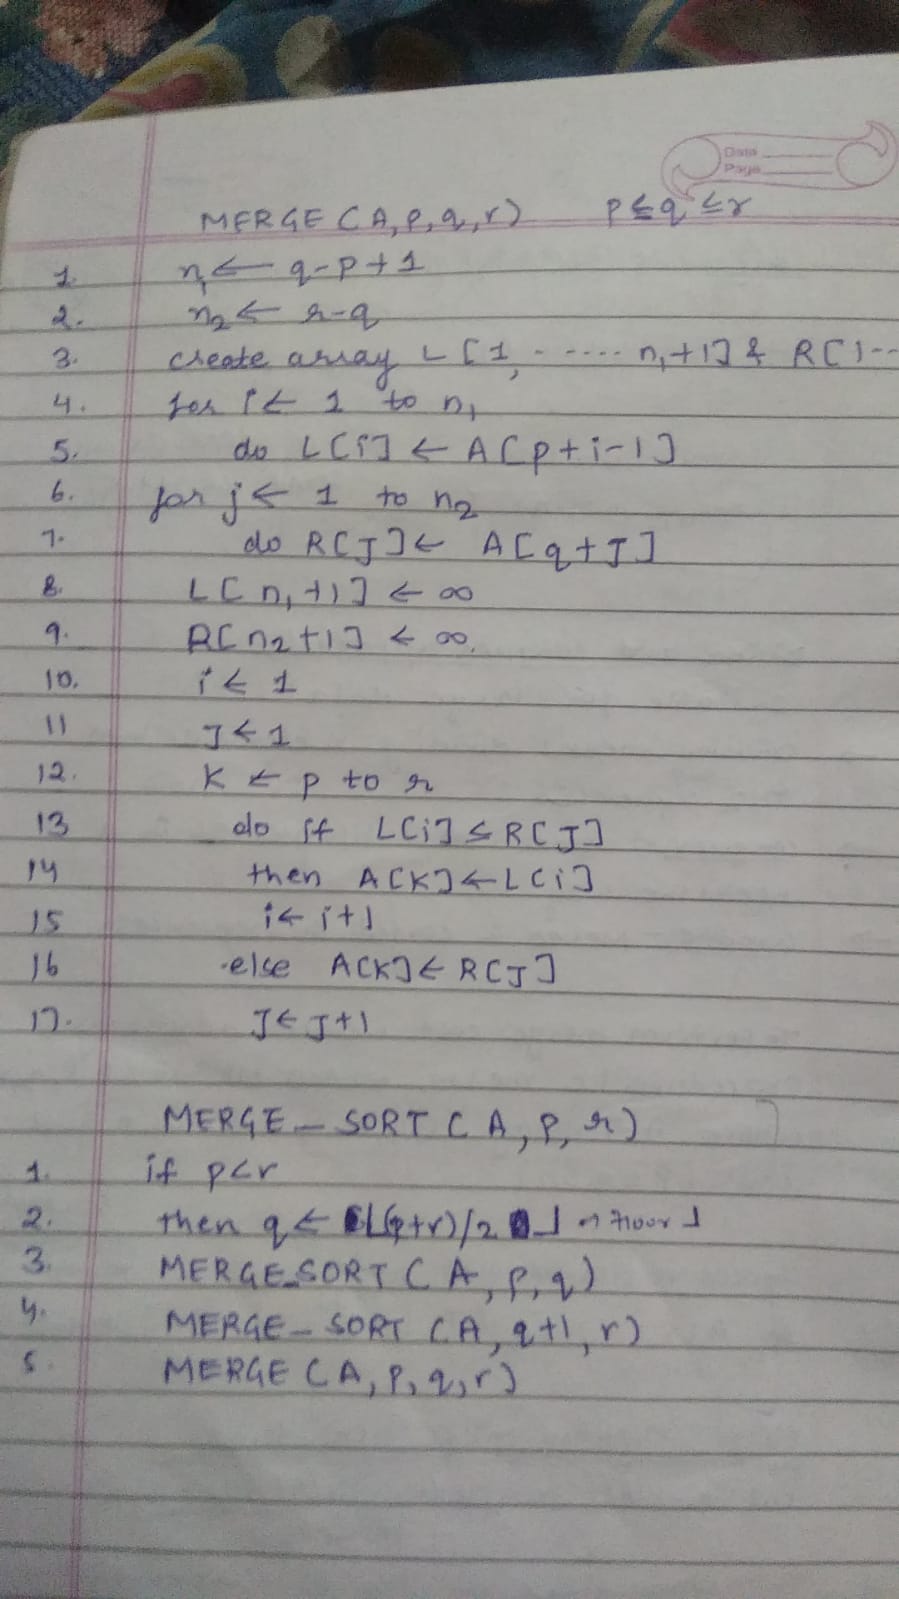 Date
Page
MERGE (A, p, q, r) p ≤ q ≤ r
1. n₁ ← q-p+1
2. n₂ ← r-q
3. create array L[1, ...... n₁+1] & R[1--
4. for i ← 1 to n₁
5. do L[i] ← A[p+i-1]
6. for j ← 1 to n₂
7. do R[J] ← A[q+J]
8. L[n₁+1] ← ∞
9. R[n₂+1] ← ∞.
10. i ← 1
11 J ← 1
12. K ← p to r
13 do if L[i] ≤ R[J]
14 then A[K] ← L[i]
15 i ← i+1
16 else A[K] ← R[J]
17. J ← J+1
MERGE - SORT (A, p, r)
1. if p<r
2. then q ← ⌊(p+r)/2⌋ floor
3. MERGE_SORT (A, p, q)
4. MERGE - SORT (A, q+1, r)
5. MERGE (A, p, q, r)